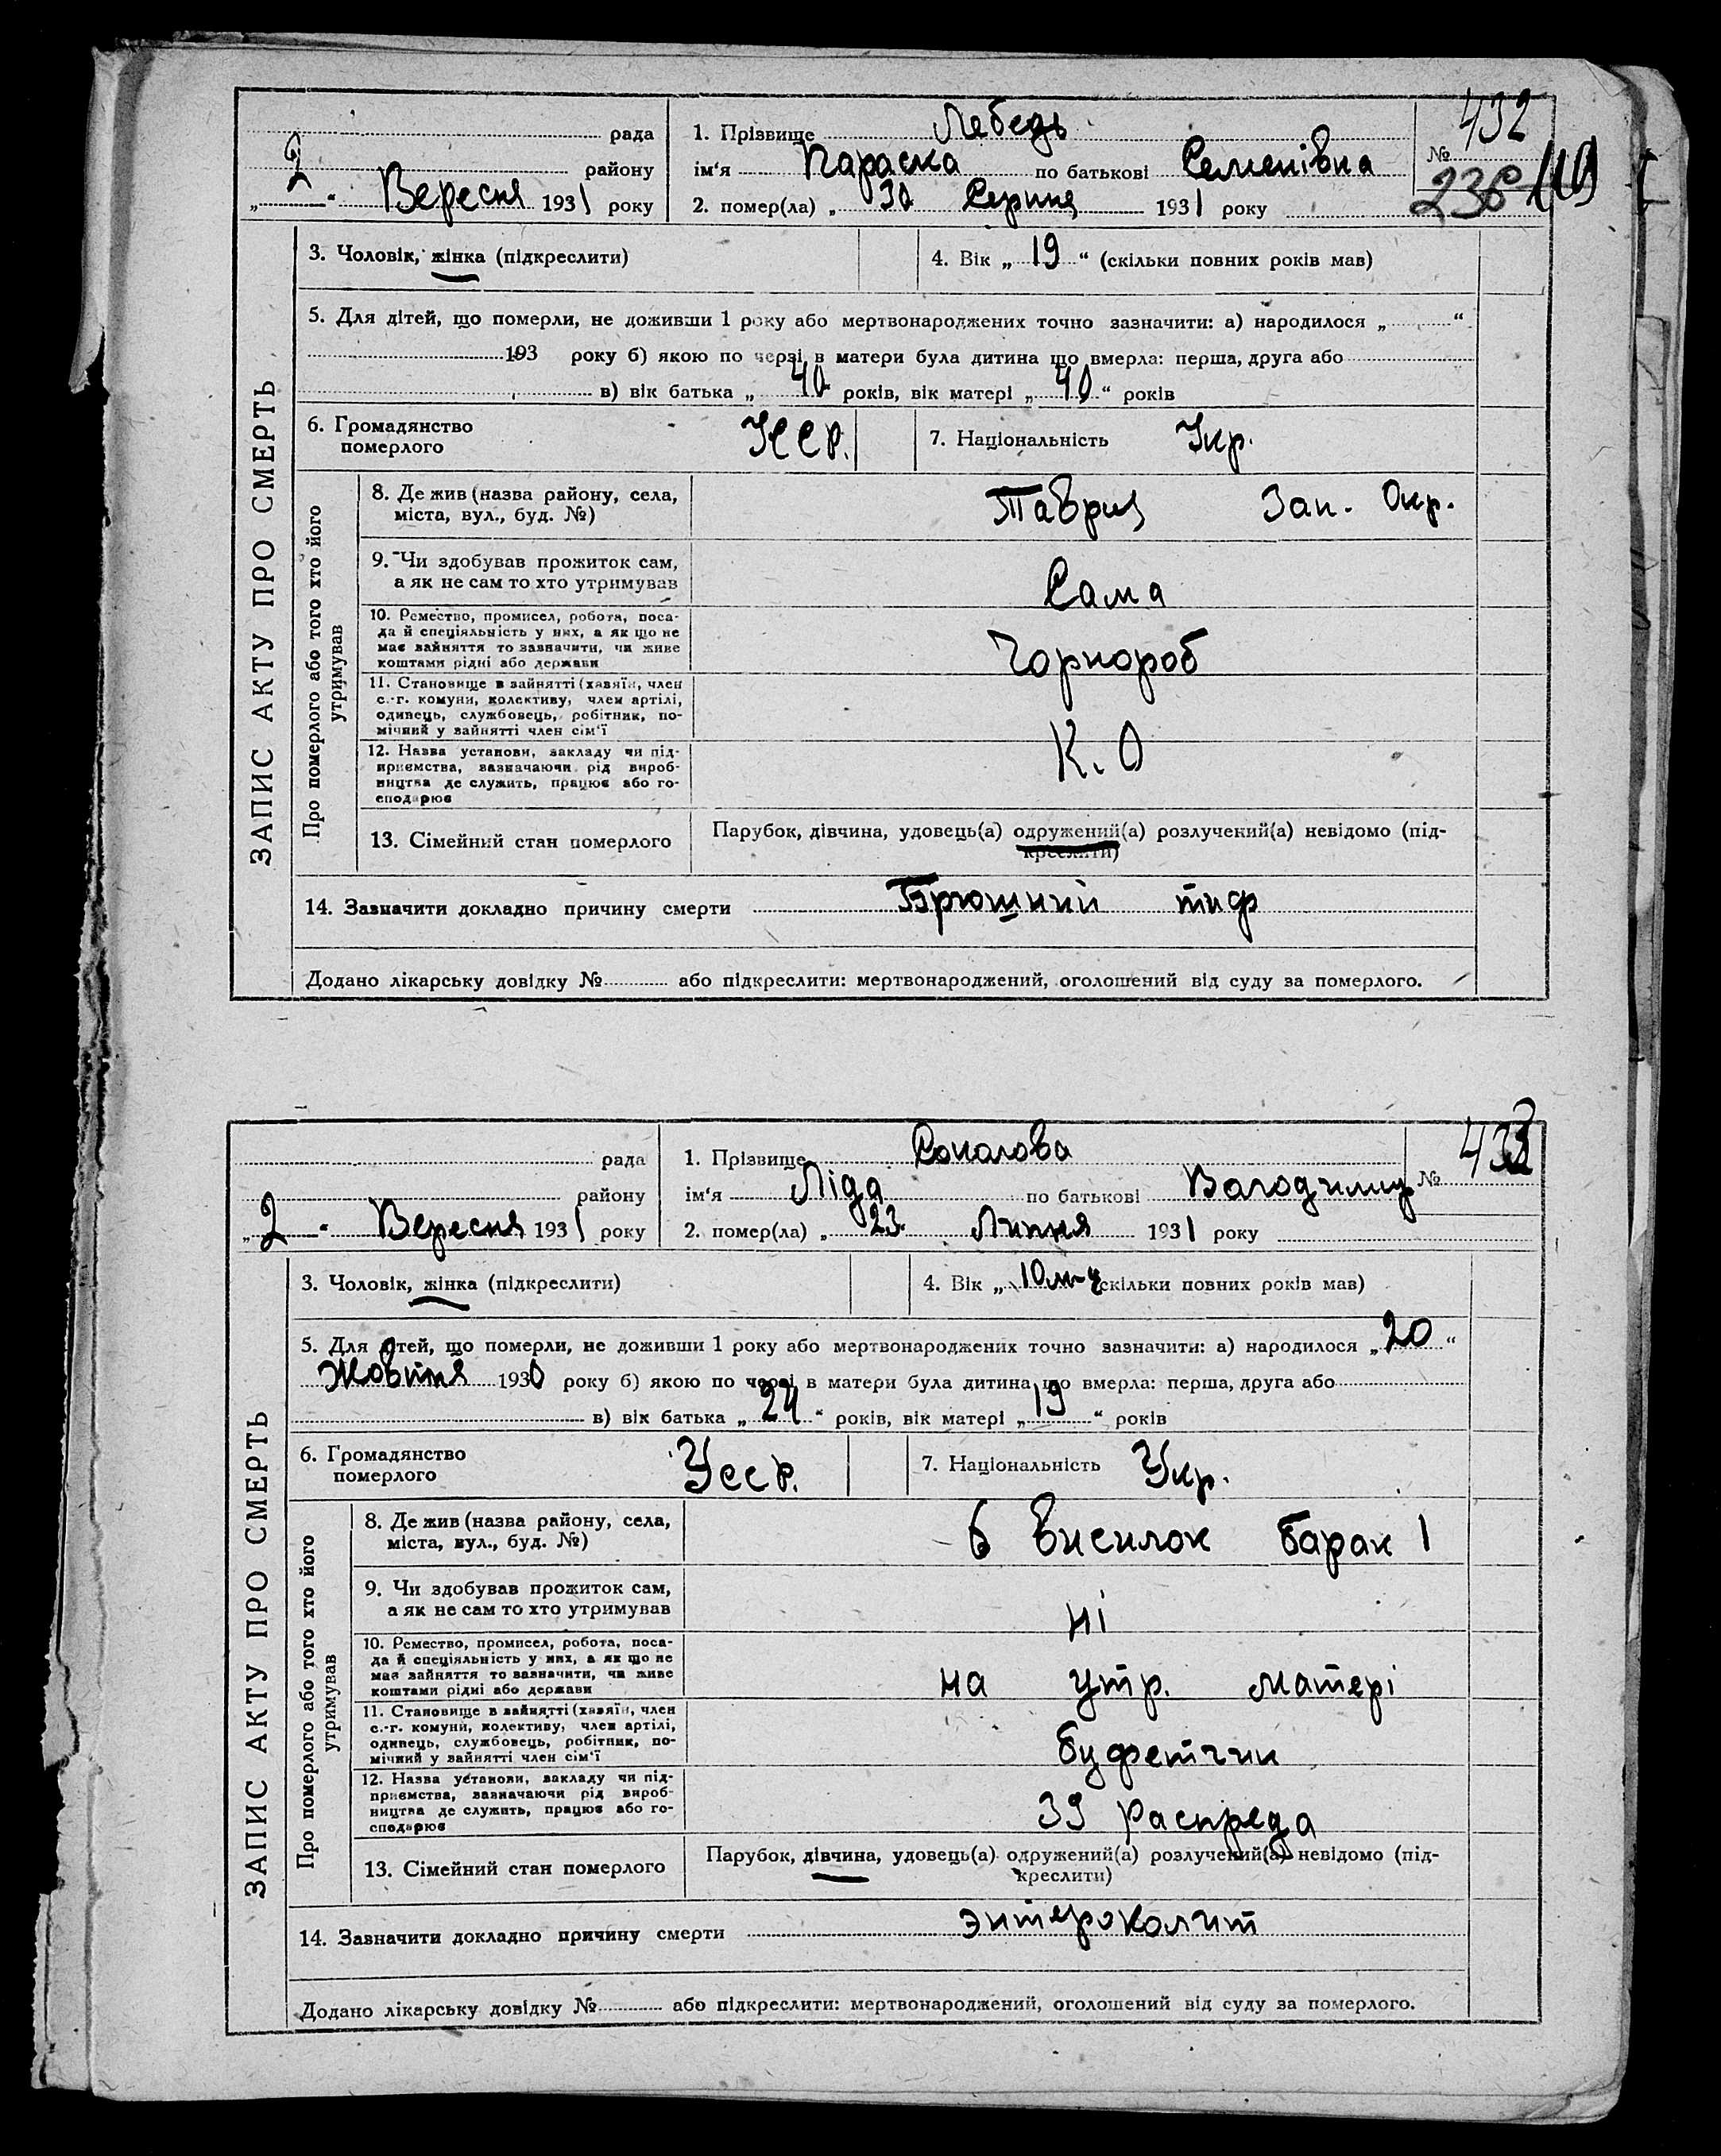 432
рада 1. Прізвище Лебедь
району ім'я Параска по батькові Семенівна №
„2“ Вересня 1931 року 2. помер(ла) „30 Серпня 1931 року 238 110
ЗАПИС АКТУ ПРО СМЕРТЬ
3. Чоловік, жінка (підкреслити) 4. Вік „19“ (скільки повних років мав)
5. Для дітей, що померли, не доживши 1 року або мертвонароджених точно зазначити: а) народилося „ “
193 року б) якою по черзі в матери була дитина що вмерла: перша, друга або
в) вік батька „40 років, вік матері „40“ років
6. Громадянство померлого УССР. 7. Національність Укр.
Про померлого або того хто його утримував
8. Де жив (назва району, села,
міста, вул., буд. №) Таврия Зап. Окр.
9. Чи здобував прожиток сам,
а як не сам то хто утримував Сама
10. Ремество, промисел, робота, поса-
да й спеціяльність у них, а як що не
має зайняття то зазначити, чи живе
коштами рідні або держави Чорнороб
11. Становище в зайнятті (хазяїн, член
с.-г. комуни, колективу, член артілі,
одинець, службовець, робітник, по-
мічний у зайнятті член сім'ї
12. Назва установи, закладу чи під-
приємства, зазначаючи рід вироб-
ництва де служить, працює або го-
сподарює К. О
13. Сімейний стан померлого Парубок, дівчина, удовець(а) одружений(а) розлучений(а) невідомо (під-
креслити)
14. Зазначити докладно причину смерти Брюшний тиф
Додано лікарську довідку № або підкреслити: мертвонароджений, оголошений від суду за померлого.
433
рада 1. Прізвище Сокалова
району ім'я Ліда по батькові №
„2“ Вересня 1931 року 2. помер(ла) „23. Липня 1931 року
ЗАПИС АКТУ ПРО СМЕРТЬ
3. Чоловік, жінка (підкреслити) 4. Вік „10 м-ц скільки повних років мав)
5. Для дітей, що померли, не доживши 1 року або мертвонароджених точно зазначити: а) народилося „20“
Жовтня 1930 року б) якою по черзі в матери була дитина що вмерла: перша, друга або
в) вік батька „24“ років, вік матері „19“ років
6. Громадянство померлого Усср. 7. Національність Укр.
Про померлого або того хто його утримував
8. Де жив (назва району, села,
міста, вул., буд. №) 6 висилок барак 1
9. Чи здобував прожиток сам,
а як не сам то хто утримував ні
10. Ремество, промисел, робота, поса-
да й спеціяльність у них, а як що не
має зайняття то зазначити, чи живе
коштами рідні або держави на утр. матері
11. Становище в зайнятті (хазяїн, член
с.-г. комуни, колективу, член артілі,
одинець, службовець, робітник, по-
мічний у зайнятті член сім'ї буфетчик
12. Назва установи, закладу чи під-
приємства, зазначаючи рід вироб-
ництва де служить, працює або го-
сподарює 39 распреда
13. Сімейний стан померлого Парубок, дівчина, удовець(а) одружений(а) розлучений(а) невідомо (під-
креслити)
14. Зазначити докладно причину смерти энтероколит
Додано лікарську довідку № або підкреслити: мертвонароджений, оголошений від суду за померлого.